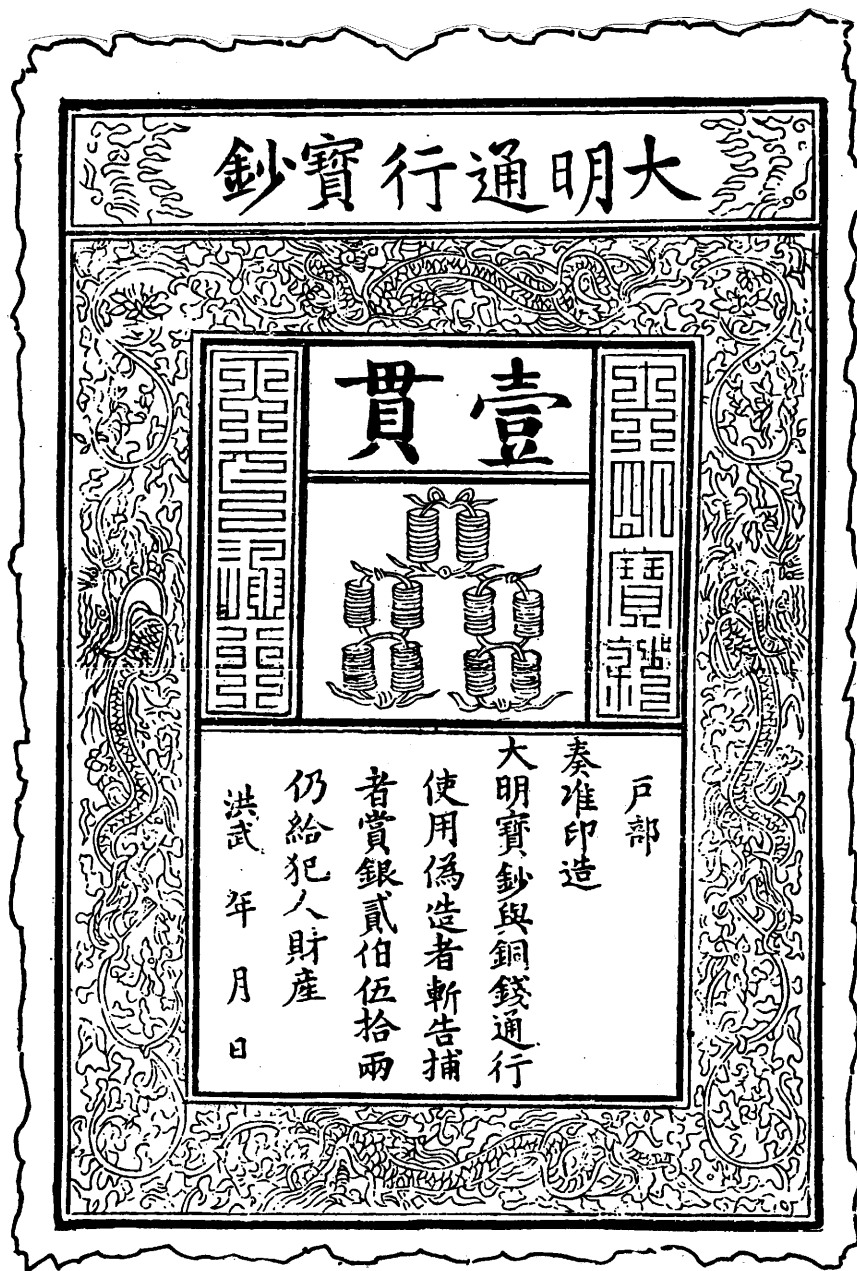 大明通行寶鈔
壹貫
大明寶鈔
天下通行
戶部
奏准印造
大明寶鈔與銅錢通行
使用偽造者斬告捕
者賞銀貳伯伍拾兩
仍給犯人財產
洪武 年 月 日